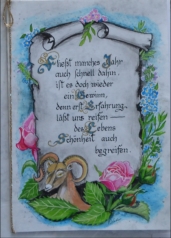 Fließt manches Jahr
auch schnell dahin,
ist es doch wieder
ein Gewinn,
denn erst Erfahrung
läßt uns reifen —
des Lebens
Schönheit auch
begreifen